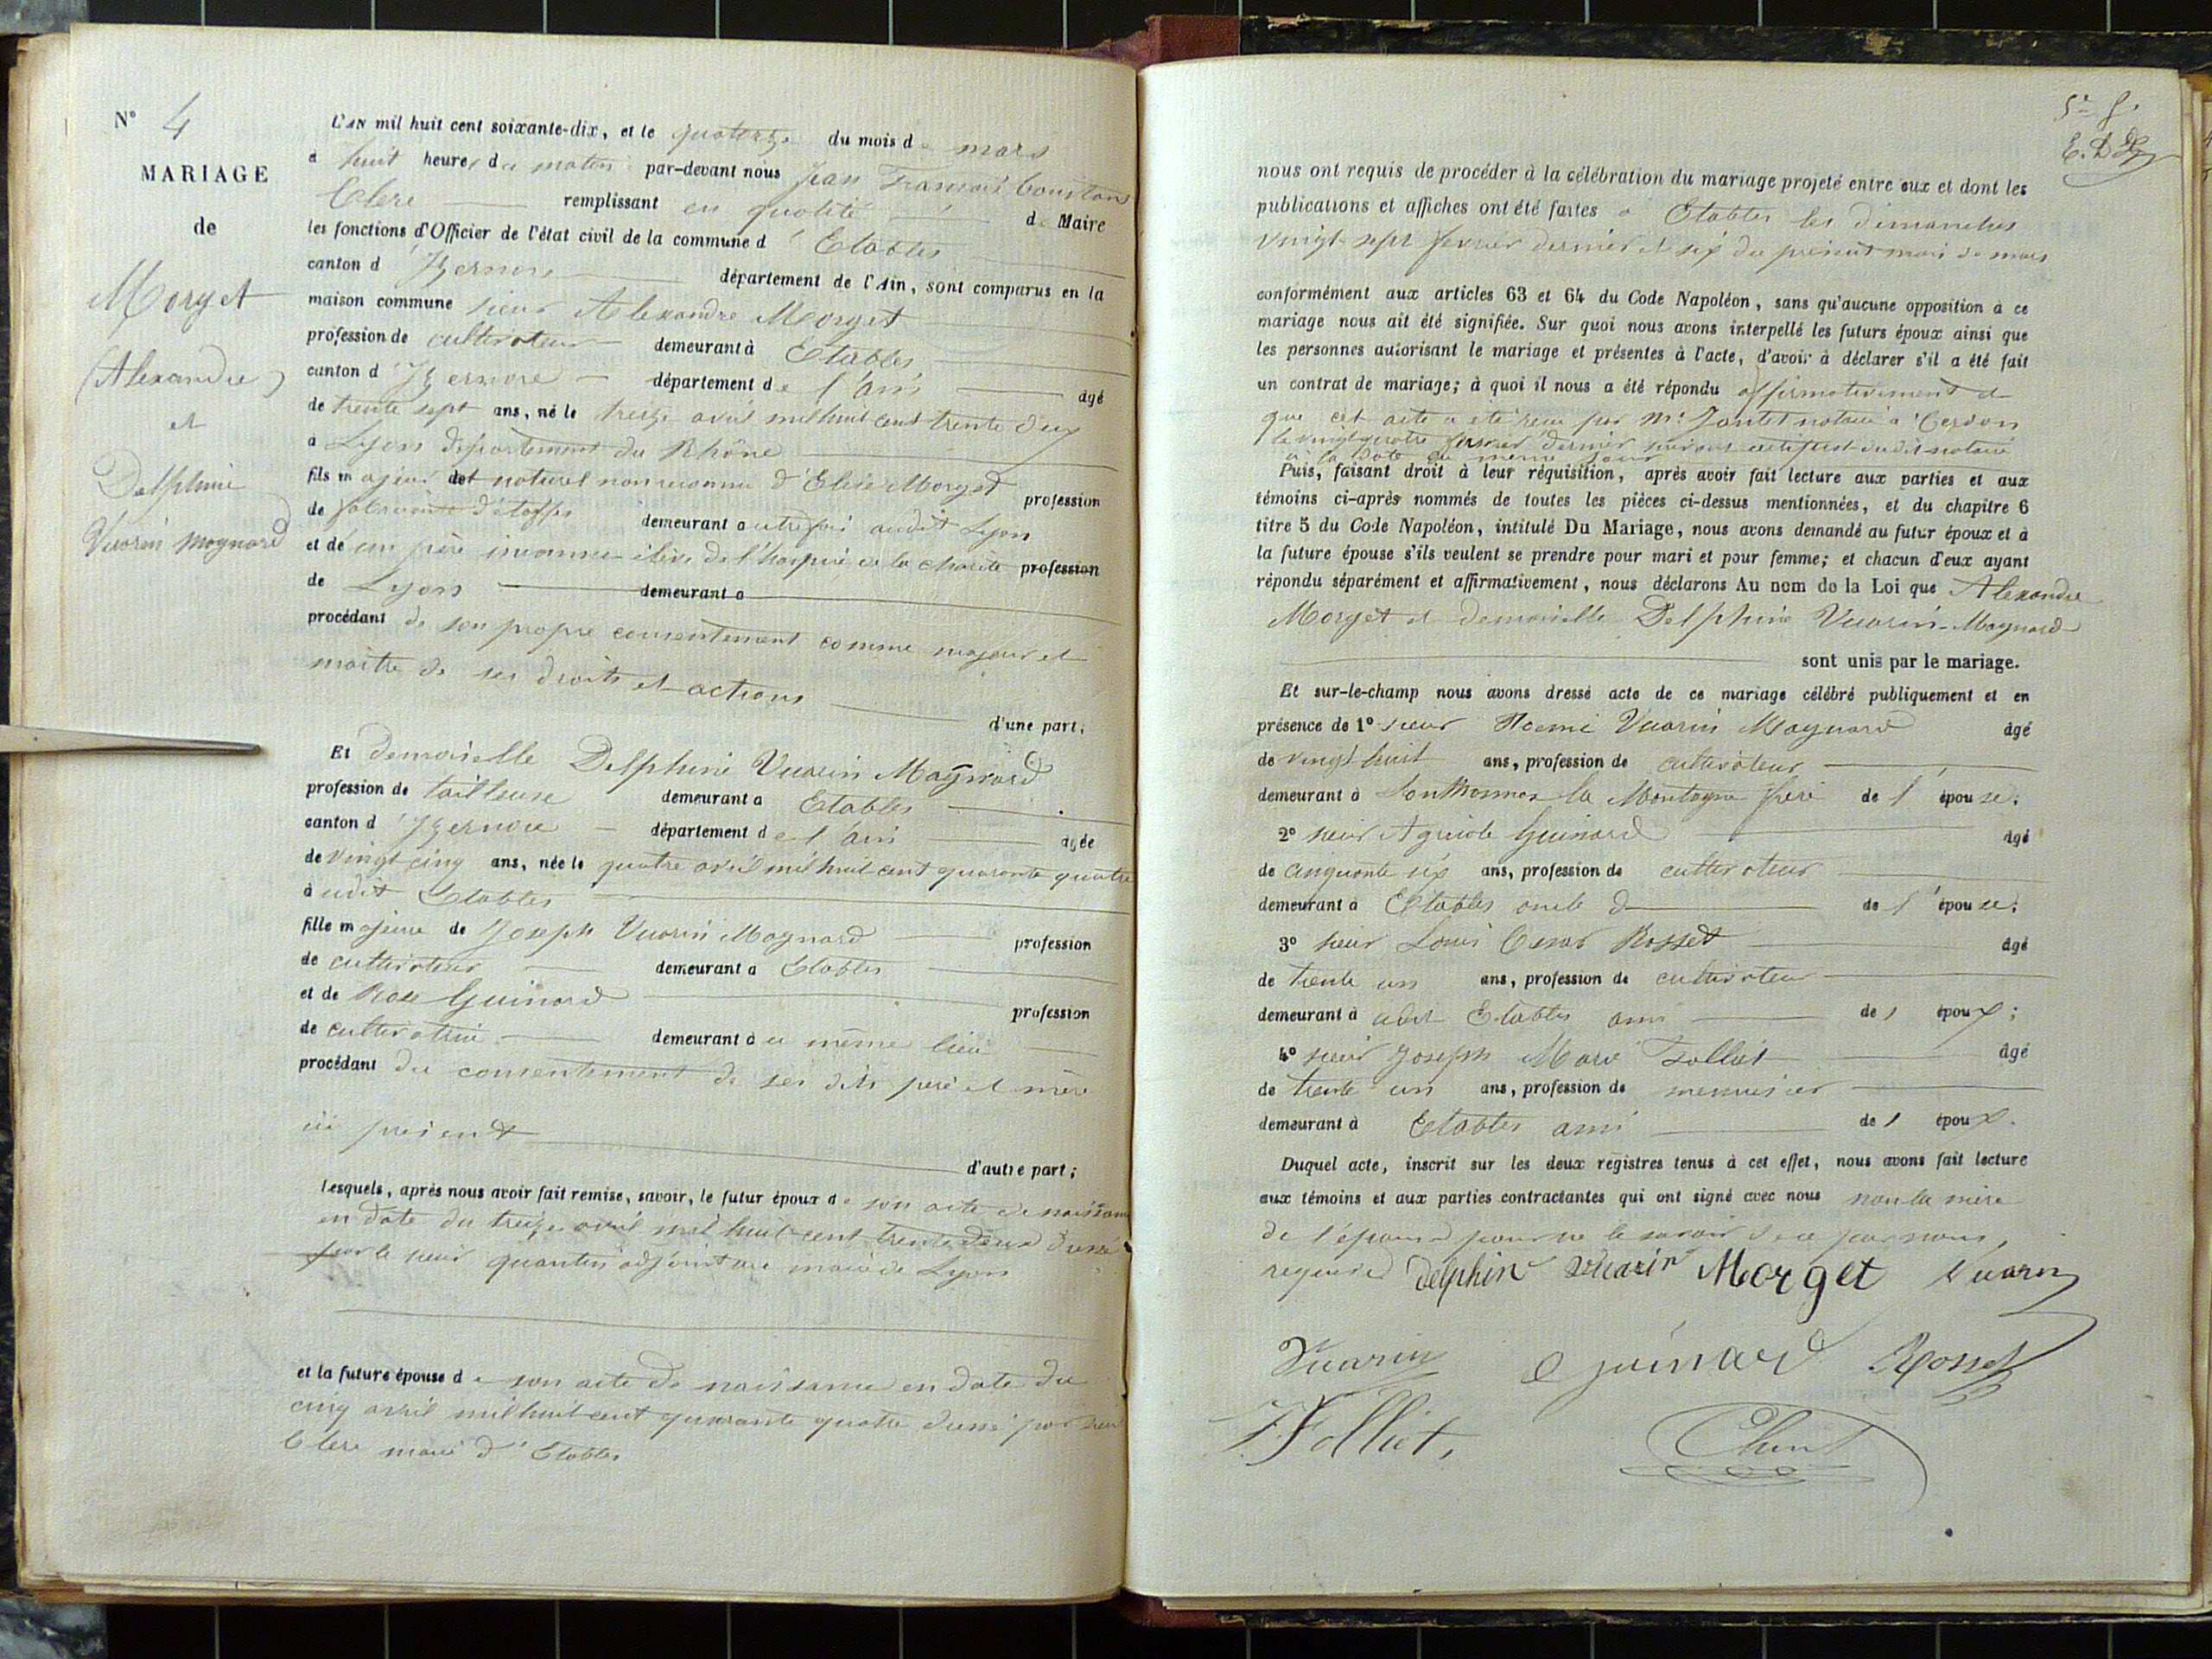 N° 4
MARIAGE
de
Morget
(Alexandre)
et
Delphine
Vuarin Magnard
L'AN mil huit cent soixante-dix, et le quatorze du mois de mars
à huit heures du matin par-devant nous Jean François
Clere remplissant en qualité de Maire
les fonctions d'Officier de l'état civil de la commune d' Etables
canton d' Izernore département de l'Ain, sont comparus en la
maison commune sieur Alexandre Morget
profession de cultivateur demeurant à Etables
canton d' Izernore département de l'ain âgé
de trente sept ans, né le treize avril mil huit cent trente deux
à Lyon département du Rhône
fils majeur et naturel non reconnu d' Morget profession
de d'étoffes demeurant autrefois audit Lyon
et de un père inconnu élève de l'hospice de la charité profession
de Lyon demeurant a
procédant de son propre consentement comme majeur et
maître de ses droits et actions
d'une part,
Et demoiselle Delphine Vuarin Magnard
profession de tailleuse demeurant a Etables
canton d' Izernore département de l'ain agée
de vingt cinq ans, née le quatre avril mil huit cent quarante quatre
audit Etables
fille majeure de Joseph Vuarin Magnard profession
de cultivateur demeurant a Etables
et de Rose Guinard profession
de cultivatrice demeurant au même lieu
procédant du consentement de ses dits père et mère
ici présent
d'autre part;
Lesquels, après nous avoir fait remise, savoir, le futur époux de son acte de naissance
en date du treize avril mil huit cent trente deux dressé
par le sieur quantin adjoint au maire de Lyon
et la future épouse de son acte de naissance en date du
cinq avril mil huit cent quarante quatre dressé par sieur
Clere maire d' Etables
nous ont requis de procéder à la célébration du mariage projeté entre eux et dont les
publications et affiches ont été faites a Etables les dimanches
vingt-sept fevrier dernier et six du présent mois de mars
conformément aux articles 63 et 64 du Code Napoléon, sans qu'aucune opposition à ce
mariage nous ait été signifiée. Sur quoi nous avons interpellé les futurs époux ainsi que
les personnes autorisant le mariage et présentes à l'acte, d'avoir à déclarer s'il a été fait
un contrat de mariage; à quoi il nous a été répondu affirmativement et
que cet acte a été reçu par Me Jantet notaire a Cerdon
le vingt quatre fevrier dernier suivant certificat dudit notaire
a la date du même jour
Puis, faisant droit à leur réquisition, après avoir fait lecture aux parties et aux
témoins ci-après nommés de toutes les pièces ci-dessus mentionnées, et du chapitre 6
titre 5 du Code Napoléon, intitulé Du Mariage, nous avons demandé au futur époux et à
la future épouse s'ils veulent se prendre pour mari et pour femme; et chacun d'eux ayant
répondu séparément et affirmativement, nous déclarons Au nom de la Loi que Alexandre
Morget et demoiselle Delphine Vuarin-Magnard
sont unis par le mariage.
Et sur-le-champ nous avons dressé acte de ce mariage célébré publiquement et en
présence de 1° sieur Noemi Vuarin Magnard âgé
de vingt huit ans, profession de cultivateur
demeurant à la Montagne frere de l'épouse;
2° sieur Agricole Guinard âgé
de cinquante six ans, profession de cultivateur
demeurant à Etables oncle de l'épouse;
3° sieur Louis Cesar Rosset âgé
de trente un ans, profession de cultivateur
demeurant à udit Etables ami de l'époux;
4° sieur Joseph Marie Folliet âgé
de trente un ans, profession de menuisier
demeurant à Etables ami de l'époux.
Duquel acte, inscrit sur les deux régistres tenus à cet effet, nous avons fait lecture
aux témoins et aux parties contractantes qui ont signé avec nous non la mère
de l'épouse pour ne le savoir de ce par nous
requise delphine vuarin Morget Vuarin
Vuarin guinard Rosset
Folliet